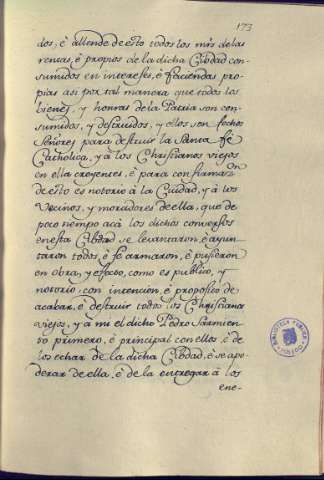 173
dos, è allende de esto todos los mrs de las
rentas, è propios de la dicha Cibdad con-
sumidos en intereses, è faciendas pro-
pias asi por tal manera que todos los
bienes, y honras de la Patria son con-
sumidos, y destruidos, y ellos son fechos
Señores para destruir la Santa fè
Catholica, y à los Christianos viejos
en ella creyentes, è para confirmasⁿ
de esto es notorio à la Cuidad, y à los
vecinos, y moradores de ella, que de
poco tiempo acà los dichos conversos
en esta Cibdad se levantaron è ayun-
taron todos, è se armaron, è pusieron
en obra, y efecto, como es publico, y
notorio con intencion, è proposito de
acabar, è destruir todos los Christianos
viejos, y à mi el dicho Pedro Sarmien-
to primero, è principal con ellos, è de
los echar de la dicha Cibdad, è se apo-
derar de ella, è de la entregar à los
ene-
BIBLIOTECA PUBLICA
TOLEDO